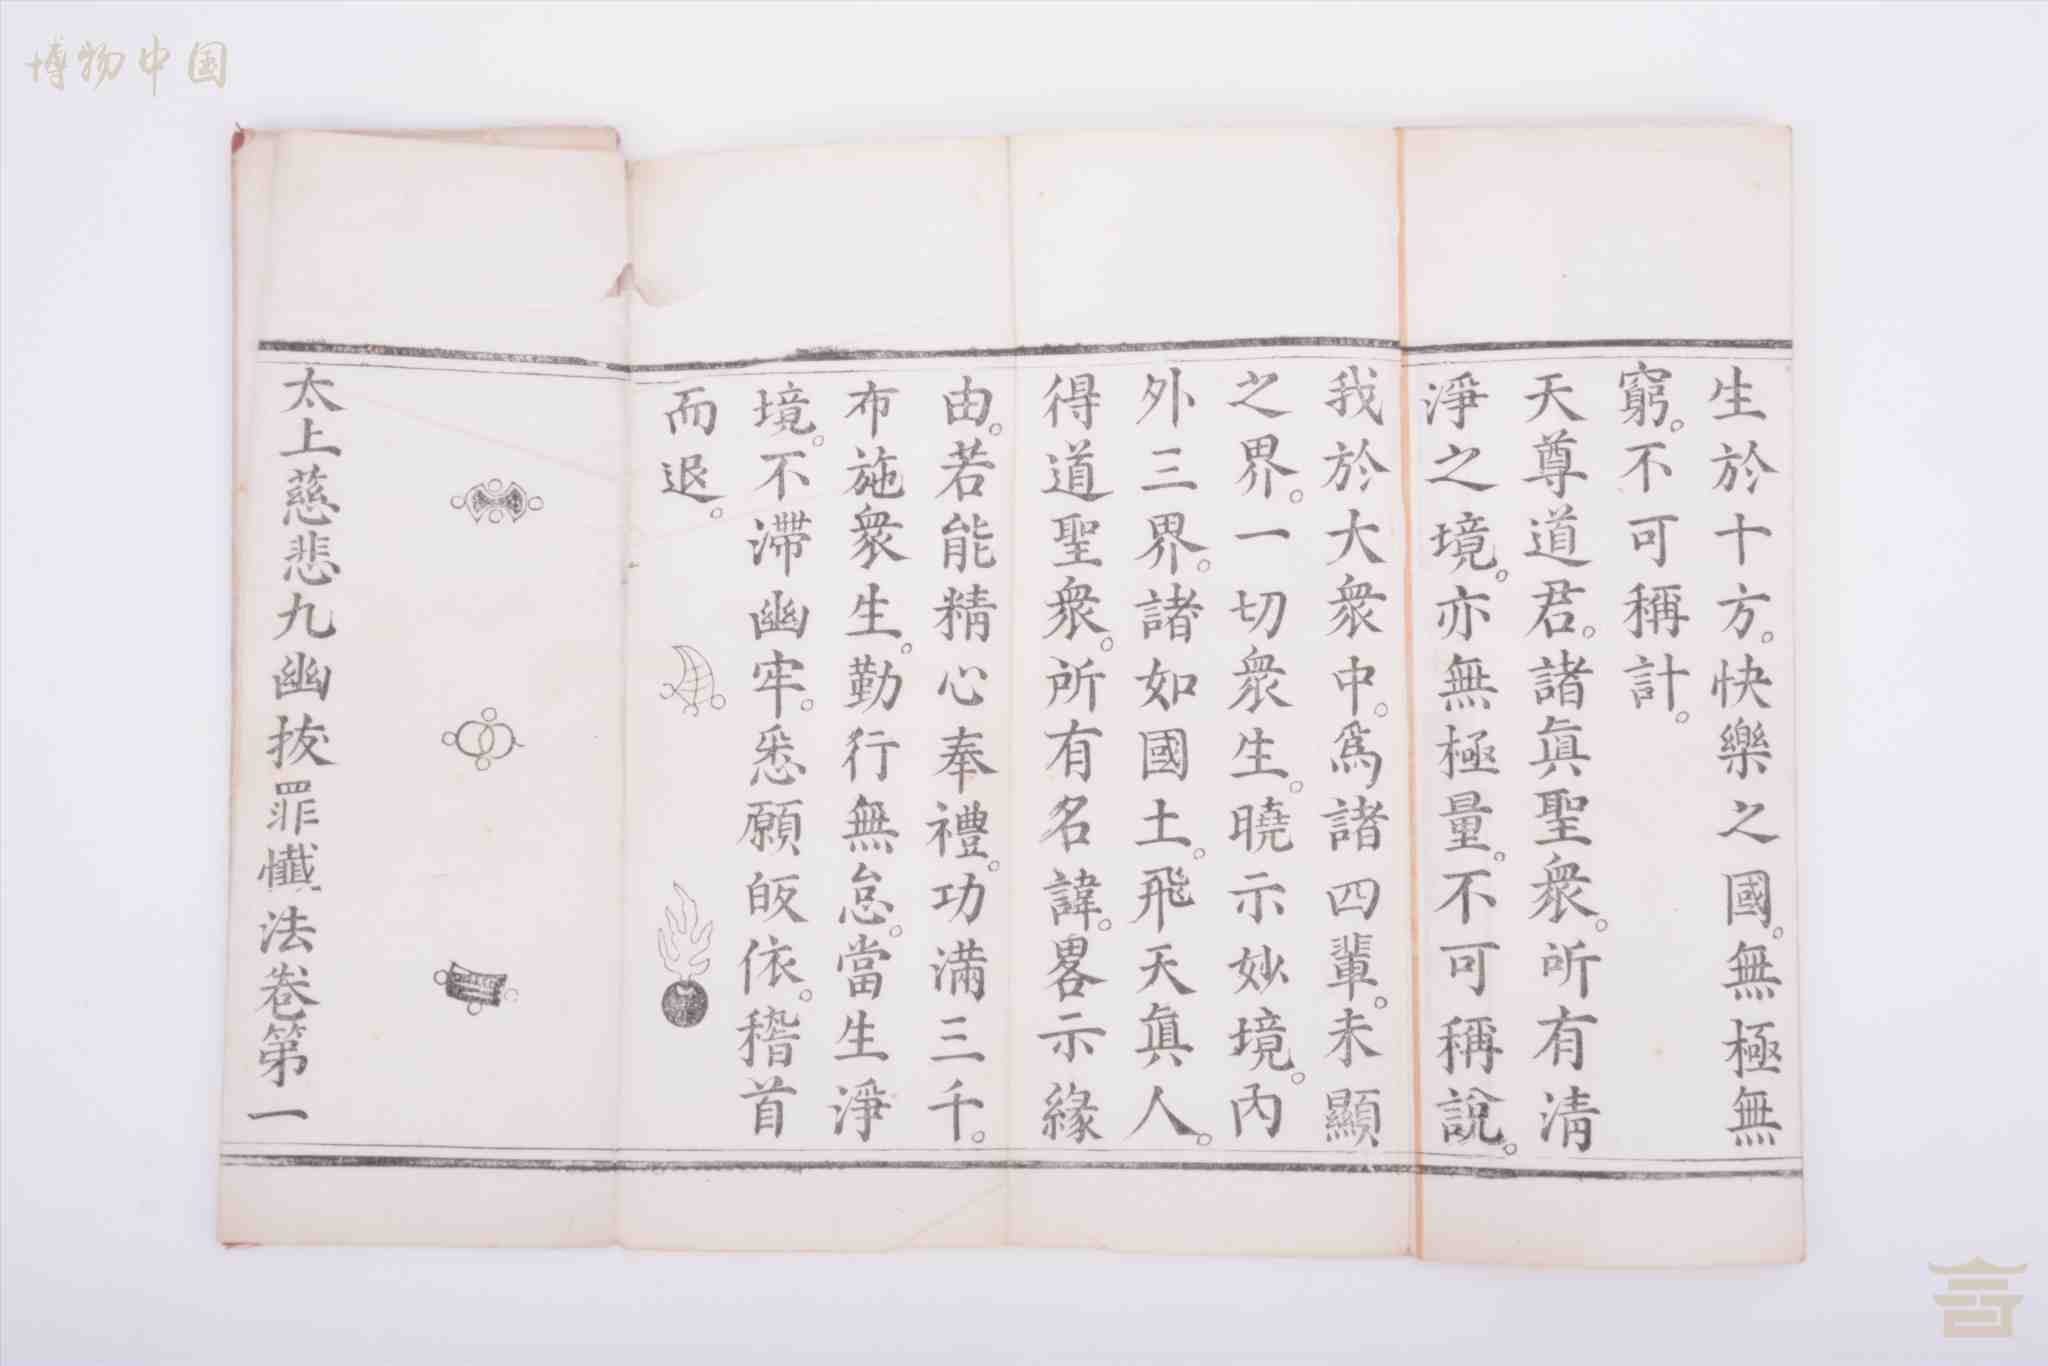 博物中国
生於十方。快樂之國。無極無
窮。不可稱計。
天尊道君。諸眞聖衆。所有清
淨之境。亦無極量。不可稱說。
我於大衆中。爲諸四輩。未顯
之界。一切衆生。曉示妙境。內
外三界。諸如國土。飛天眞人。
得道聖衆。所有名諱。畧示緣
由。若能精心奉禮。功滿三千。
布施衆生。勤行無怠。當生淨
境。不滯幽牢。悉願皈依。稽首
而退。
太上慈悲九幽拔罪懺法卷第一